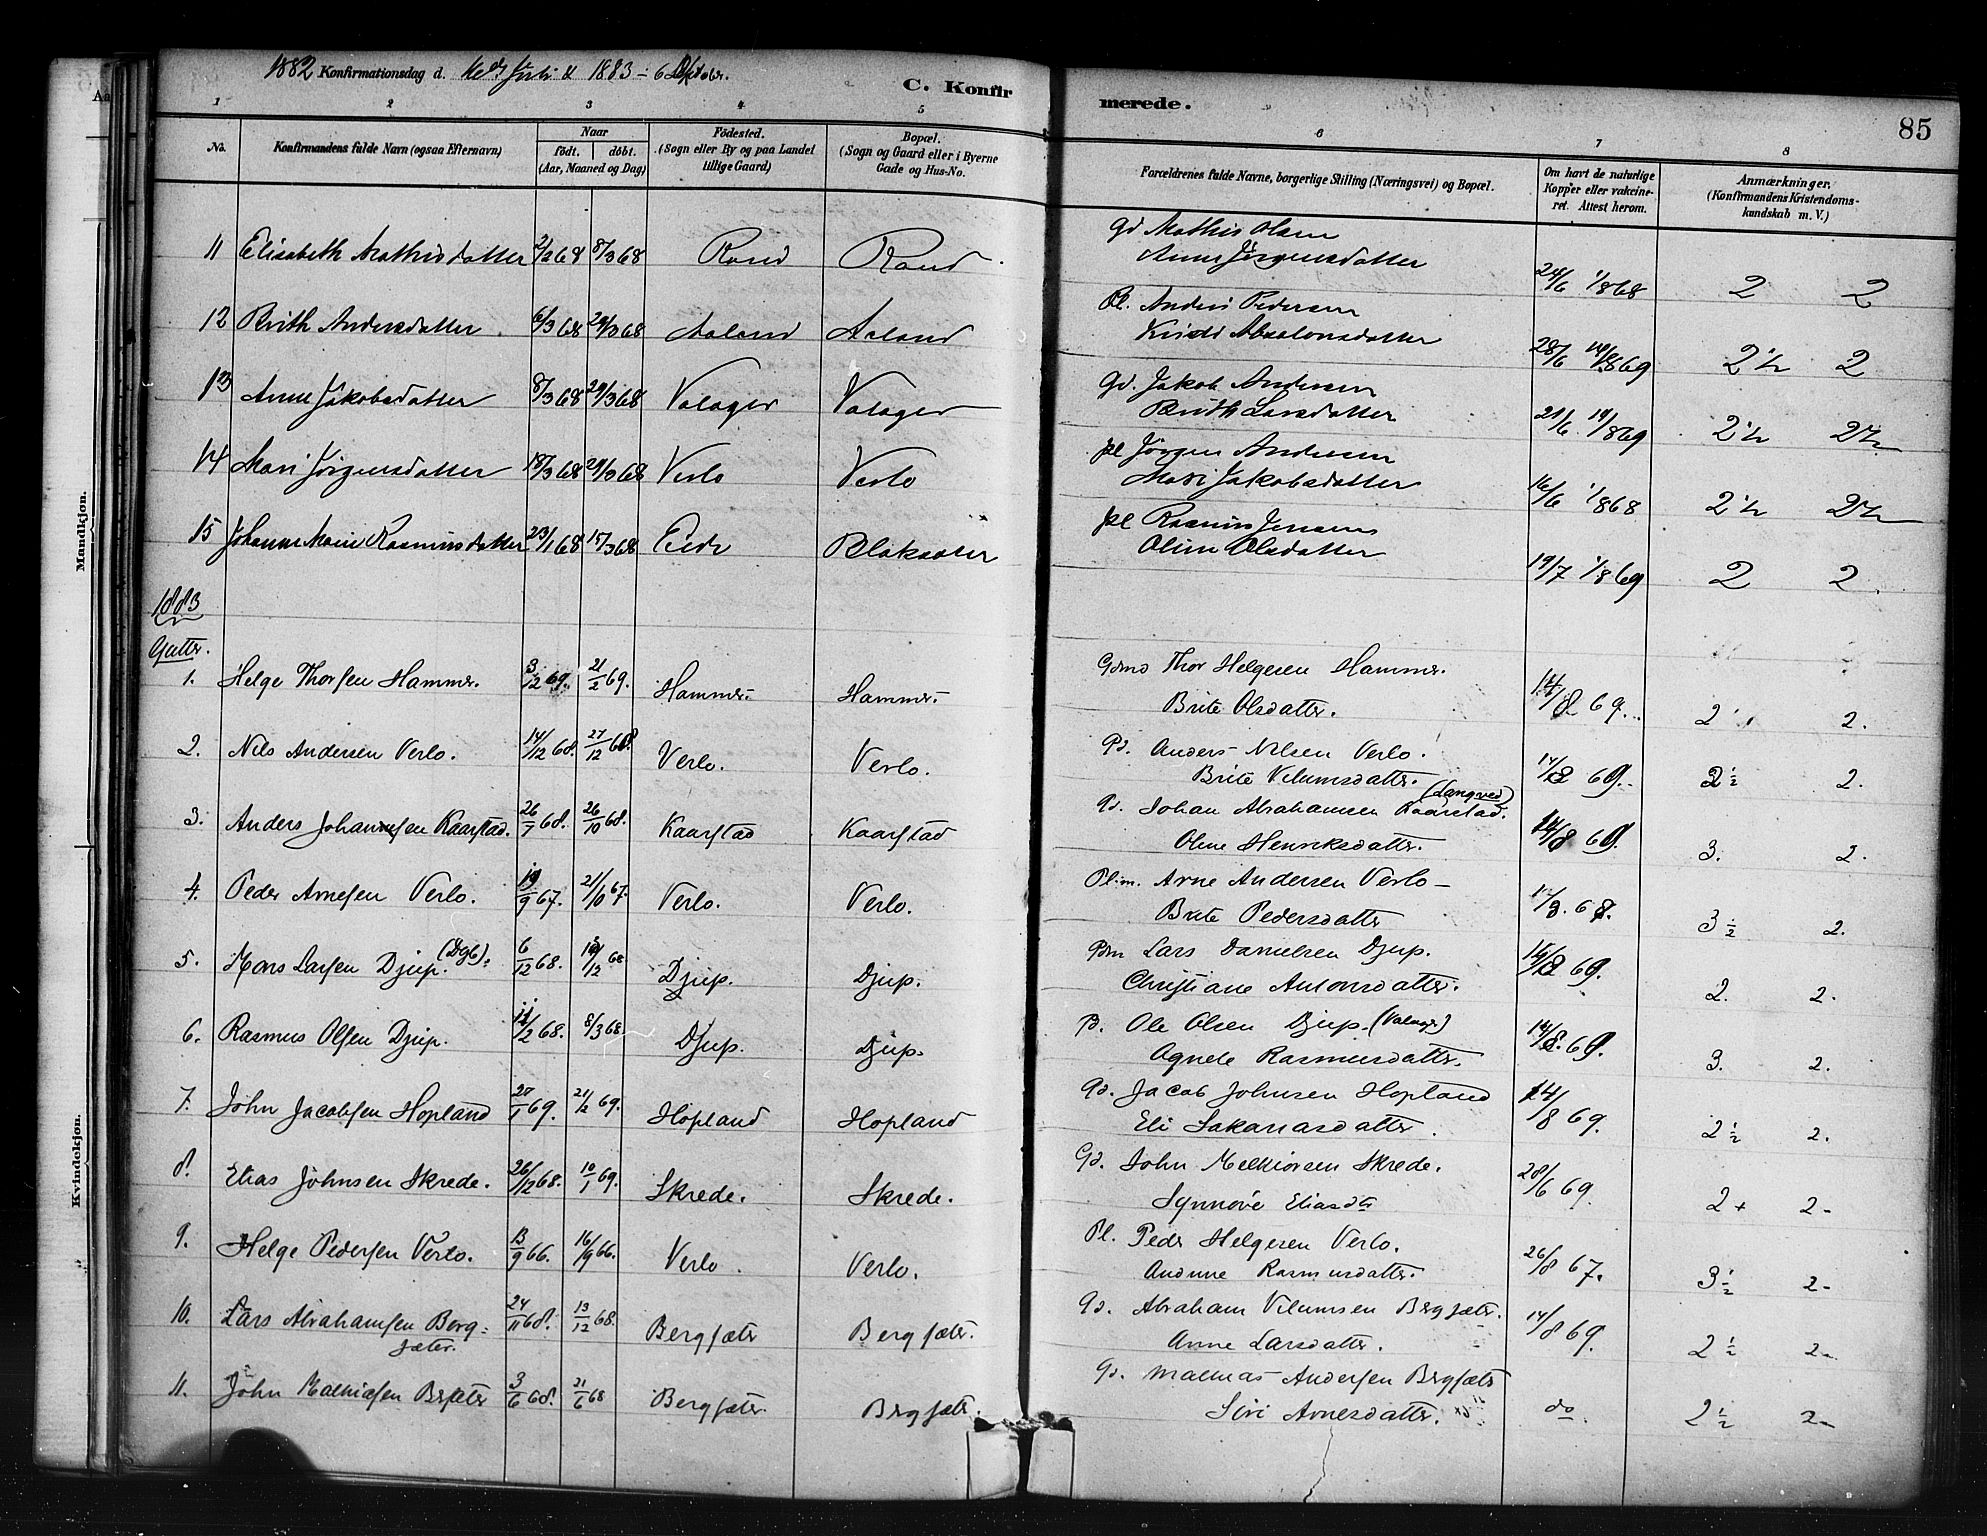 1882 Konfirmationsdag d. 1883 - 6 Oktobr.
C. Konfirmerede.
85
1 2 3 4 5 6 7 8
No.
Konfirmandens fulde Navn (ogsaa Efternavn)
Naar
født. døbt.
(Aar, Maaned og Dag)
Fødested.
(Sogn eller By og paa Landet
tillige Gaard)
Bopæl.
(Sogn og Gaard eller i Byerne
Gade og Hus-No.
Forældrenes fulde Navne, borgerlige Stilling (Næringsvei) og Bopæl.
Om havt de naturlige
Kopper eller vakcine-
ret. Attest herom.
Anmærkninger.
(Konfirmandens Kristendoms-
kundskab m. V.)
Mandkjøn.
Kvindekjøn.
11 Elisabeth Mathisdatter 2/2 68 8/3 68 Rand Rand Gd Mathis Olsen
Anne Jørgensdatter 24/6 1/868 2 2
12 Brith Andersdatter 6/3 68 29/3 68 Aaland Aaland Pl. Anders Pedersen
Absalonsdatter 28/6 869 2½ 2
13 Anne Jakobsdatter 8/3 68 29/3 68 Valager Valager Gd. Jakob Andersen
Brith Larsdatter 21/6 19/869 2½ 2½
14 Mari Jørgensdatter 18/3 68 29/3 68 Verlo Verlo pl Jørgen Andersen
Mari Jakobsdatter 16/6 1/868 2½ 2½
15 Johanne Marie Rasmusdatter 23/1 68 15/3 68 Eide Blaksæter pl Rasmus Jensen
Oline Olsdatter 19/7 1/8 69 2 2.
1883
Gutter.
1. Helge Thorsen Hammer. 3/12 69. 21/2 69. Hammer. Hammer. Gdmd Thor Helgesen Hammer.
Brite Olsdatter. 14/8 69. 2 2.
2. Nils Andersen Verlo. 14/12 68. 27/12 68. Verlo. Verlo. Pd. Anders Nilsen Verlo.
Brite Vilumsdatter. 14/8 69. 2½ 2.
3. Anders Johannesen Kaarstad. 26/7 68. 26/10 68. Kaarstad Kaarstad Gd. Johan Abrahamsen Kaarstad. (Langved)
Oline Henriksdatter. 14/8 69. 3. 2.
4. Peder Arnesen Verlo. 19/9 67. 21/10 67. Verlo. Verlo. Pl.m. Arne Andersen Verlo
Brite Pedersdatter 3½ 2.
5. Mons Larsen Djup. (Dgb). 6/12 68. Djup. Djup. Lars Danielsen Djup.
Christiane Antonsdatter. 14/8 69. 2. 2.
6. Rasmus Olsen Djup. 12/2 68. 8/3 68 Djup. Djup. Ole Olsen Djup. (Valager)
Agnete Rasmusdatter. 14/8. 69. 3. 2.
7. John Jacobsen Hopland 27/1 69. 21/2 69. Hopland Hopland Gd. Jacob Johnsen Hopland
Eli Sakariasdatter. 14/8 69. 2½ 2.
8. Elias Johnsen Skrede. 26/12 68. 10/1 69. Skrede. Skrede. Gd. John Melkiorsen Skrede.
Synnøve Eliasdtr 28/6 69. 2+ 2-
9. Helge Pedersen Verlo. 13/9 66. 16/9 66. Verlo. Verlo. Pl. Peder Helgesen Verlo.
Rasmusdatter. 26/8 67. 3½ 2-
10. Lars Abrahamsen Berg-
sæter. 24/11 68. 13/12 68. Bergsæter Bergsæter. Gd. Abraham Vilumsen Bergsæter.
Anne Larsdatter. 14/8 69. 2½ 2-
11. John Mathiasen Bergsæter 3/6 68. 21/6 68 Bergsæter. Bergsæter. Gd. Mathias Andersen Bergsæter
Siri Arnesdatter. do. 2½ 2-